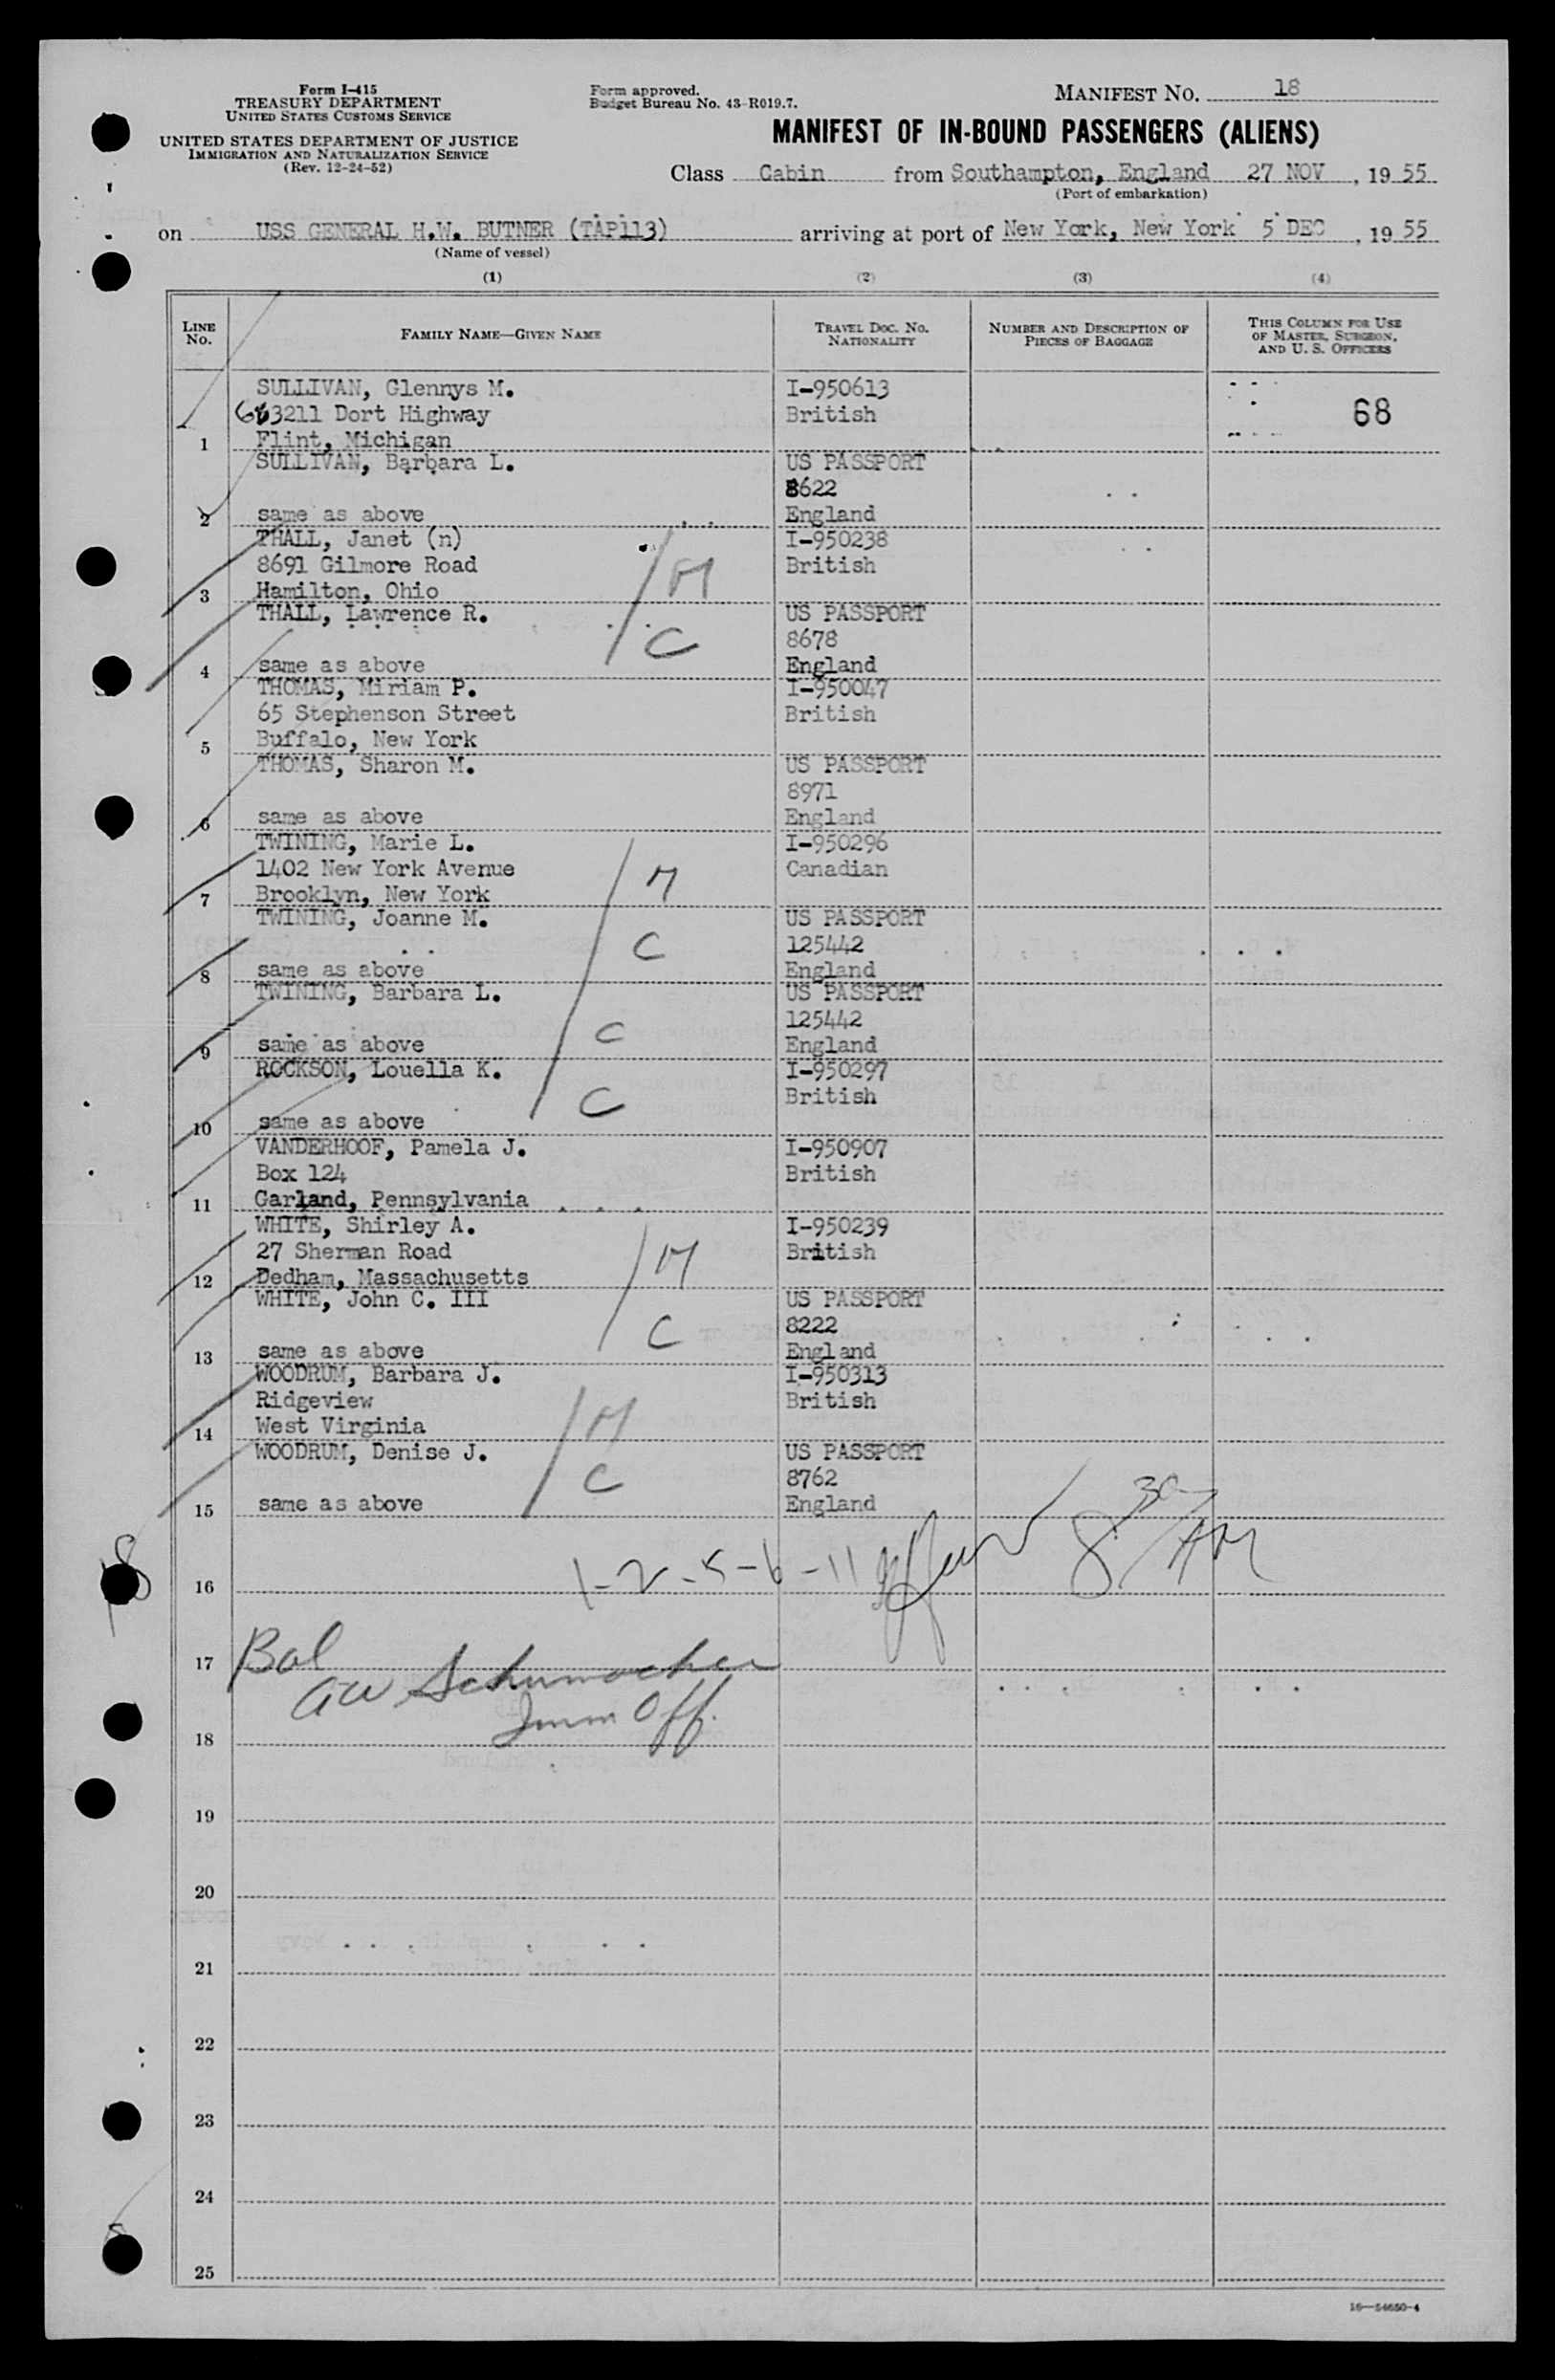 Form I-415
TREASURY DEPARTMENT
UNITED STATES CUSTOMS SERVICE
UNITED STATES DEPARTMENT OF JUSTICE
IMMIGRATION AND NATURALIZATION SERVICE
(Rev. 12-24-52)
Form approved.
Budget Bureau No. 43-R019.7.
MANIFEST NO. 18
MANIFEST OF IN-BOUND PASSENGERS (ALIENS)
Class Cabin from Southampton, England 27 NOV, 1955
(Port of embarkation)
on USS GENERAL H.W. BUTNER (TAP113) arriving at port of New York, New York 5 DEC, 1955
(Name of vessel)
(1) (2) (3) (4)
LINE NO. FAMILY NAME—GIVEN NAME TRAVEL DOC. NO. NATIONALITY NUMBER AND DESCRIPTION OF PIECES OF BAGGAGE THIS COLUMN FOR USE OF MASTER, SURGEON, AND U. S. OFFICERS
SULLIVAN, Glennys M. I-950613
3211 Dort Highway British 68
1 Flint, Michigan
SULLIVAN, Barbara L. US PASSPORT
8622
2 same as above England
THALL, Janet (n) I-950238
8691 Gilmore Road British M
3 Hamilton, Ohio
THALL, Lawrence R. US PASSPORT
C 8678
4 same as above England
THOMAS, Miriam P. I-950047
65 Stephenson Street British
5 Buffalo, New York
THOMAS, Sharon M. US PASSPORT
8971
6 same as above England
TWINING, Marie L. I-950296
1402 New York Avenue M Canadian
7 Brooklyn, New York
TWINING, Joanne M. US PASSPORT
C 125442
8 same as above England
TWINING, Barbara L. US PASSPORT
C 125442
9 same as above England
ROCKSON, Louella K. I-950297
C British
10 same as above
VANDERHOOF, Pamela J. I-950907
Box 124 British
11 Garland, Pennsylvania
WHITE, Shirley A. I-950239
27 Sherman Road M British
12 Dedham, Massachusetts
WHITE, John C. III US PASSPORT
C 8222
13 same as above England
WOODRUM, Barbara J. I-950313
Ridgeview M British
14 West Virginia
WOODRUM, Denise J. US PASSPORT
C 8762
15 same as above England
16 1-2-5-6-11 8 30 AM
17 Bal
AW Schumacher
18 Imm Off.
19
20
21
22
23
24
25
16—54650-4